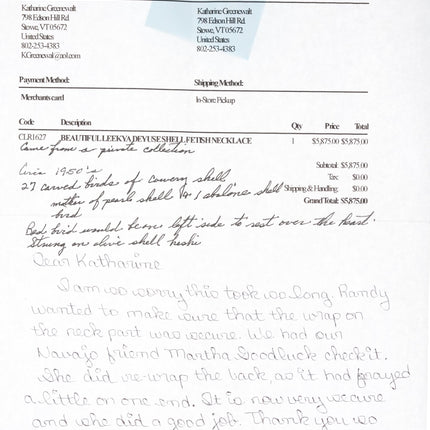 Katharine Greenewalt
798 Edson Hill Rd.
Stowe, VT 05672
United States
802-253-4383
KGreenewalt@aol.com
Katharine Greenewalt
798 Edson Hill Rd.
Stowe, VT 05672
United States
802-253-4383
Payment Method: Shipping Method:
Merchants card In-Store Pickup
Code Description Qty Price Total
CLR1627 BEAUTIFUL LEEKYA DEYUSE SHELL FETISH NECKLACE 1 $5,875.00 $5,875.00
Came from a private collection
Subtotal: $5,875.00
Tax: $0.00
Shipping & Handling: $0.00
Grand Total: $5,875.00
Circa 1950's
27 carved birds of cowery shell
mother of pearl shell 1 abalone shell
bird
Red bird would be on left side to rest over the heart.
Strung on olive shell heshi
Dear Katharine
I am so sorry this took so long. Randy
wanted to make sure that the wrap on
the neck part was secure. We had our
Navajo friend Martha Goodluck check it.
She did re-wrap the back, as it had frayed
a little on one end. It is now very secure
and she did a good job. Thank you so